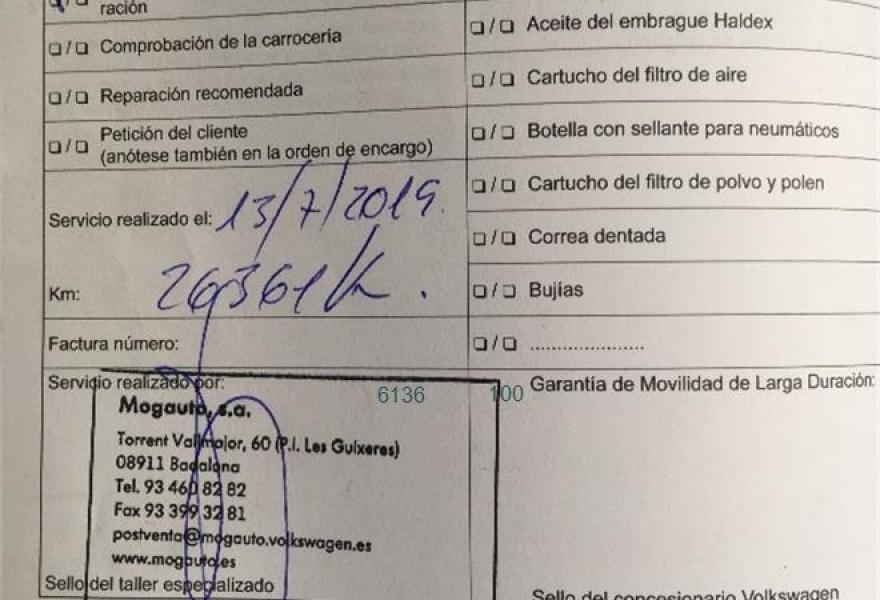 ración
Comprobación de la carrocería
Reparación recomendada
Petición del cliente
(anótese también en la orden de encargo)
Servicio realizado el: 13/7/2019.
Km: 26361 K.
Factura número:
Servicio realizado por:
6136 100
Mogauto, s.a.
Torrent Vallmajor, 60 (P.I. Les Guixeres)
08911 Badalona
Tel. 93 460 82 82
Fax 93 399 32 81
postventa@mogauto.volkswagen.es
www.mogauto.es
Sello del taller especializado
Aceite del embrague Haldex
Cartucho del filtro de aire
Botella con sellante para neumáticos
Cartucho del filtro de polvo y polen
Correa dentada
Bujías
.....................
Garantía de Movilidad de Larga Duración:
Sello del concesionario Volkswagen